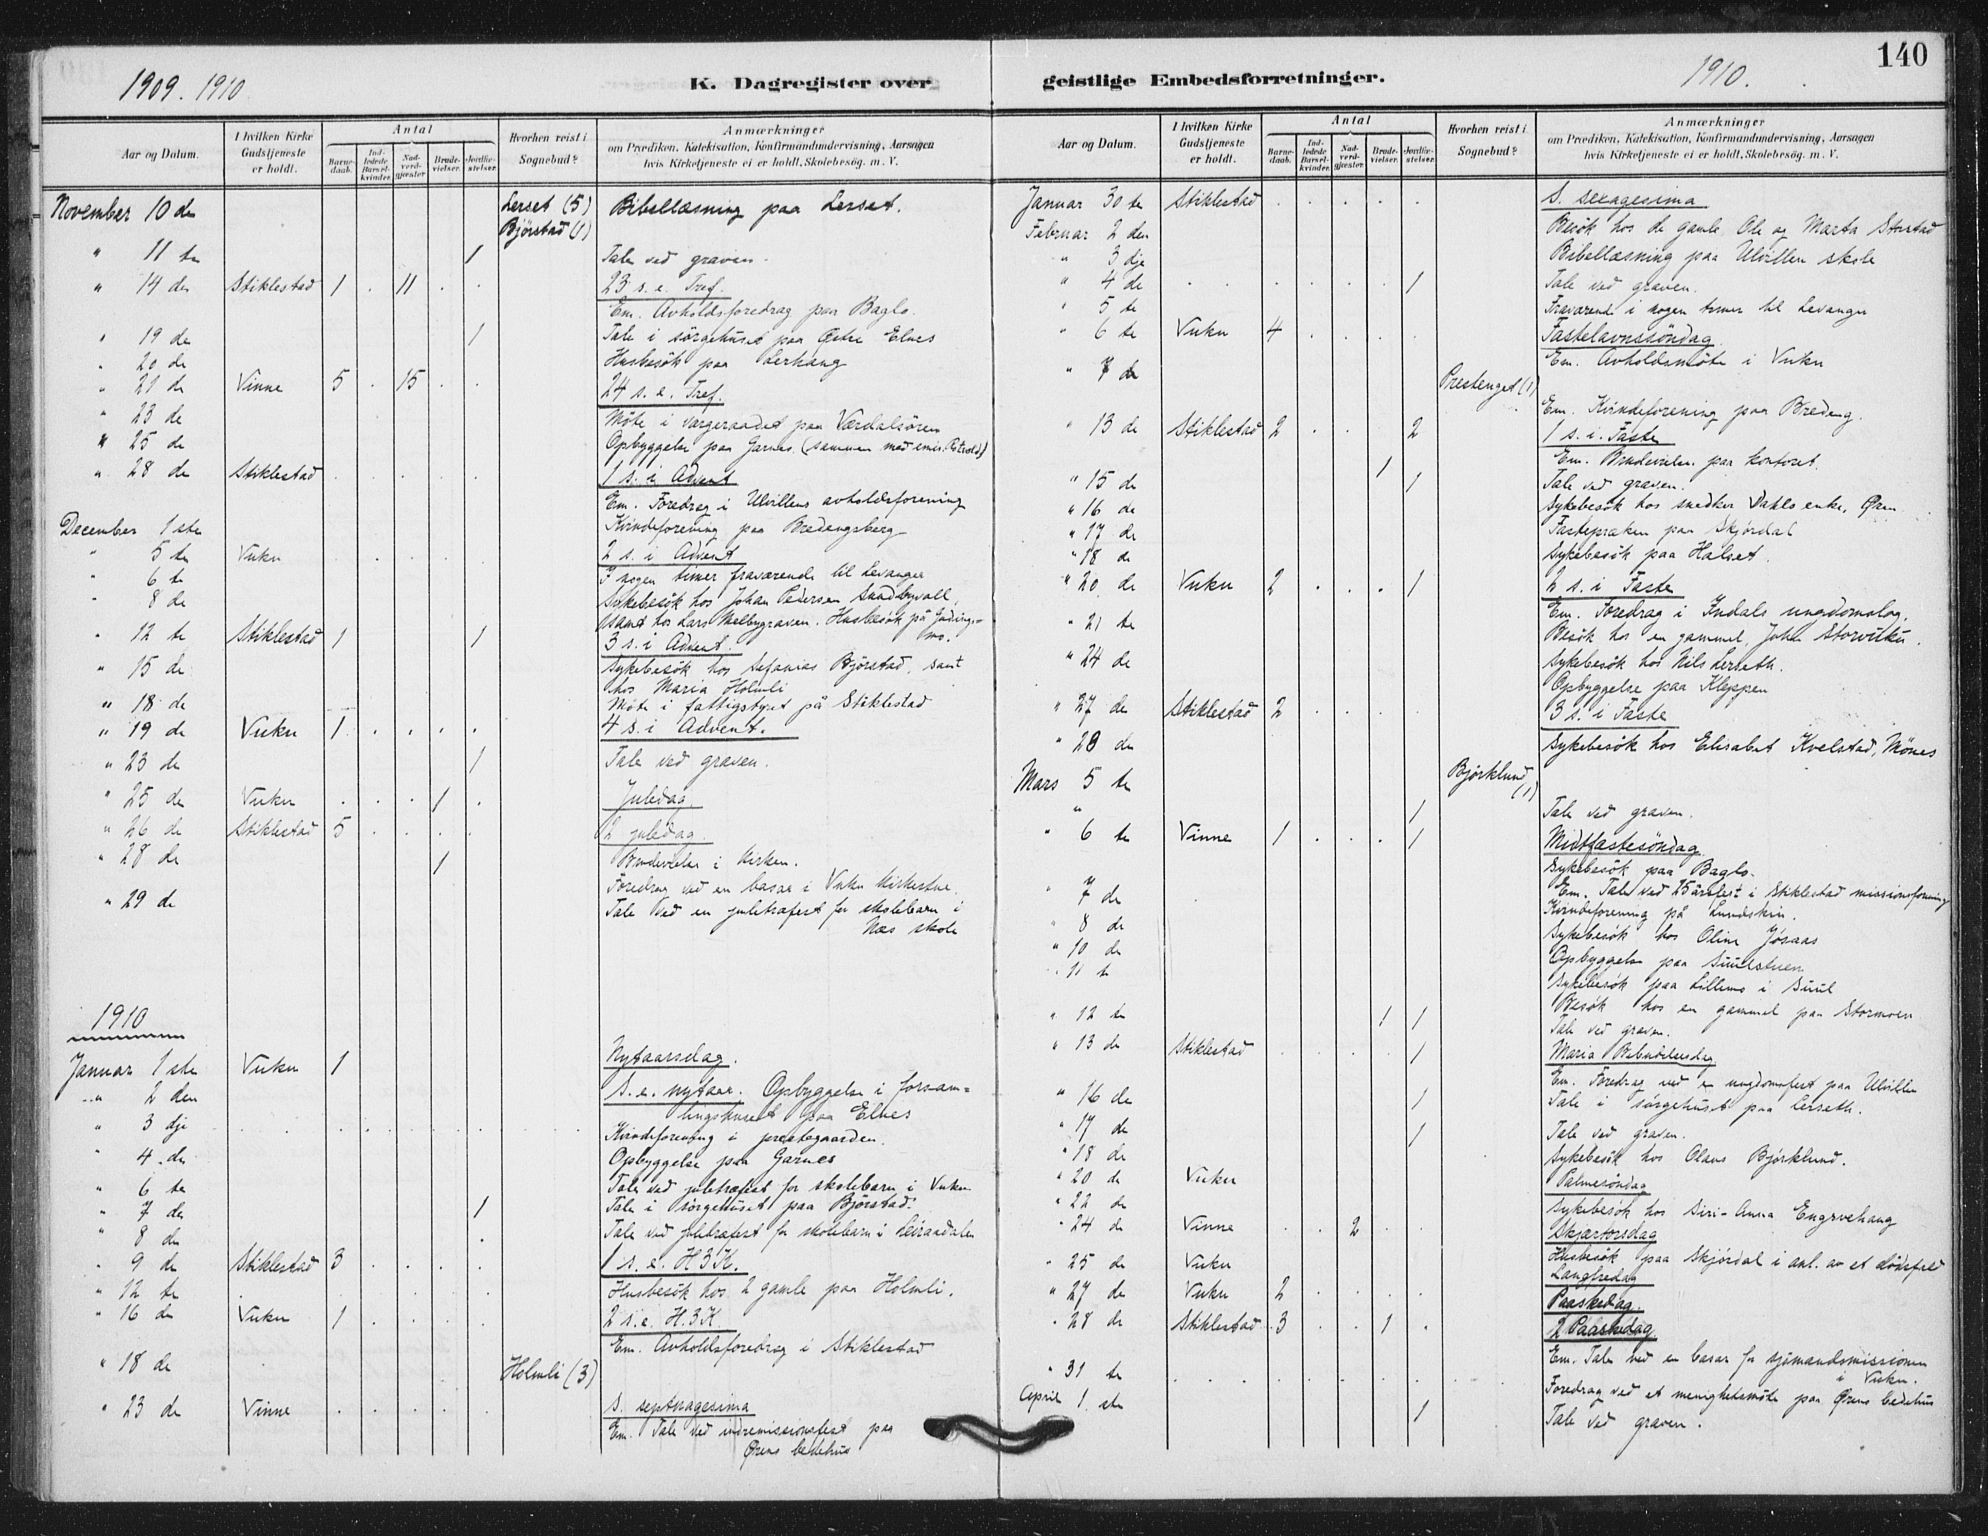 1909. 1910
K. Dagregister over
geistlige Embedsforretninger.
1910.
140
Aar og Datum.
I hvilken Kirke Gudstjeneste er holdt.
Antal
Barnedaab.
Indledede Barselkvinder.
Nadverdgjæster
Brudevielser.
Jordfæstelser.
Hvorhen reist i Sognebud?
Anmærkninger
om Prædiken, Katekisation, Konfirmandundervisning, Aarsagen
hvis Kirketjeneste ei er holdt, Skolebesøg. m. V.
November 10 de Lerset (5) Bibellæsning paa Lerset.
Bjørstad (1)
" 11 te 1 Tale ved graven.
" 14 de Stiklestad 1 . 11 . . 23 s. e. Tref.
Em. Avholdsforedrag paa Baglo.
" 19 de 1 Tale i sørgehuset paa Østre Elnes
" 20 de Husbesök paa Lerhaug
" 21 de Vinne 5 . 15 . . 24 s. e. Tref.
" 23 de Möte i værgeraadet paa Værdalsören
" 25 de Opbyggelse paa Garnes (sammen med emis.
" 28 de Stiklestad 1 s. i Advent
Em. Foredrag i Ulvillens avholdsforening
December 1 ste Kvindeforening paa Bredengsberg
" 5 te Vuku 2 s. i Advent
" 6 te I nogen timer fraværende til Levanger
" 8 de Sykebesök hos Johan Pedersen
samt hos Lars Melbygraven. Husbesök på
" 12 te Stiklestad 1 1 3 s. i Advent.
" 15 de Sykebesök hos Sefanias Bjørstad, samt
hos Maria Holmli
" 18 de Möte i fattigstyret på Stiklestad
" 19 de Vuku 1 . . . . 4 s. i Advent.
" 23 de 1 Tale ved graven.
" 25 de Vuku . . . 1 . Juledag
" 26 de Stiklestad 5 . . . . 2 juledag.
" 28 de 1 Brudevielse i kirken.
Foredrag ved en basar i Vuku kirkestue.
" 29 de Tale ved en juletræfest for skolebarn i
Næs skole
1910
Januar 1 ste Vuku 1 Nytaarsdag.
" 2 den S. e. nytaar. Opbyggelse i forsam-
lingshuset paa Elnes
" 3 dje Kvindeforening i prestegaarden.
" 4 de Opbyggelse paa Garnes
" 6 te Tale ved juletræfest for skolebarn i Vuku
" 7 de 1 Tale i sørgehuset paa Bjørstad.
" 8 de Tale ved juletræfest for skolebarn i Leiraadalen
" 9 de Stiklestad 3 1 s. e. H3K.
" 12 te Husbesök hos 2 gamle paa Holmli.
" 16 de Vuku 1 2 s. e. H3K.
Em. Avholdsforedrag i Stiklestad
" 18 de Holmli (3)
" 23 de Vinne S. septuagesima
Em. Tale ved indremissionsfest paa
Ørens bedehus
Aar og Datum.
I hvilken Kirke Gudstjeneste er holdt.
Antal
Barnedaab.
Indledede Barselkvinder.
Nadverdgjæster
Brudevielser.
Jordfæstelser.
Hvorhen reist i Sognebud?
Anmærkninger
om Prædiken, Katekisation, Konfirmandundervisning, Aarsagen
hvis Kirketjeneste ei er holdt, Skolebesøg. m. V.
Januar 30 te Stiklestad S. sexagesima
Februar 2 den Besök hos de gamle Ole og Marta Storstad
" 3 dje Bibellæsning paa Ulvillen skole
" 4 de 1 Tale ved graven.
" 5 te Fraværende i nogen timer til Levanger
" 6 te Vuku 4 Fastelavnssöndag
Em. Avholdsmöte i Vuku
" 7 de Prestenget (1)
Em. Kvindeforening paa Bredeng.
" 13 de Stiklestad 2 . . . 2 1 s. i Faste
1 Em. Brudevielse paa kontoret.
" 15 de 1 Tale ved graven.
" 16 de Sykebesök hos snedker Dahls enke, Øren
" 17 de Fastepræken paa Skjørdal
" 18 de Sykebesök paa Halset.
" 20 de Vuku 2 . . . 1 2 s. i Faste
Em. Foredrag i Indals ungdomslag.
" 21 te Besök hos en gammel, John Storvuku.
" 24 de Sykebesök hos Nils Lerseth.
Opbyggelse paa Kleppen
" 27 de Stiklestad 2 3 s. i Faste
" 28 de Sykebesök hos Elisabet Kvelstad, Mönes
Mars 5 te Björklund (1)
" 1 Tale ved graven.
" 6 te Vinne 1 . . . 1 Midtfastesöndag
Sykebesök paa Baglo.
Em. Tale ved 25 årsfest i Stiklestad missionsforening
" 7 de Kvindeforening på Lundskin.
" 8 de Sykebesök hos Oline Jösaas
" 10 de Opbyggelse paa Suulstuen
" 11 te Sykebesök paa Lillemo i Suul
Besök hos en gammel paa Stormoen
" 12 te 1 1 Tale ved graven.
" 13 de Stiklestad 1 Maria Bebudelsesdag
Em. Foredrag ved en ungdomsfest paa Ulvillen
" 16 de 1 Tale i sørgehuset paa Lerseth.
" 17 de 1 Tale ved graven.
" 18 de Sykebesök hos Olaus Björklund.
" 20 de Vuku Palmesöndag
" 22 de Sykebesök hos Siri-Anna
" 24 de Vinne . . 2 . . Skjærtorsdag
Husbesök paa Skjördal i anl. av et dödsfald
" 25 de Vuku Langfredag
" 27 de Vuku 2 Paaskedag.
" 28 de Stiklestad 3 . . 1 . 2 Paaskedag
Em. Tale ved en basar for sjömandsmissionen
i Vuku.
" 31 te Foredrag ved et menighetsmöte paa Ørens bedehus
April 1. ste 1 Tale ved graven.